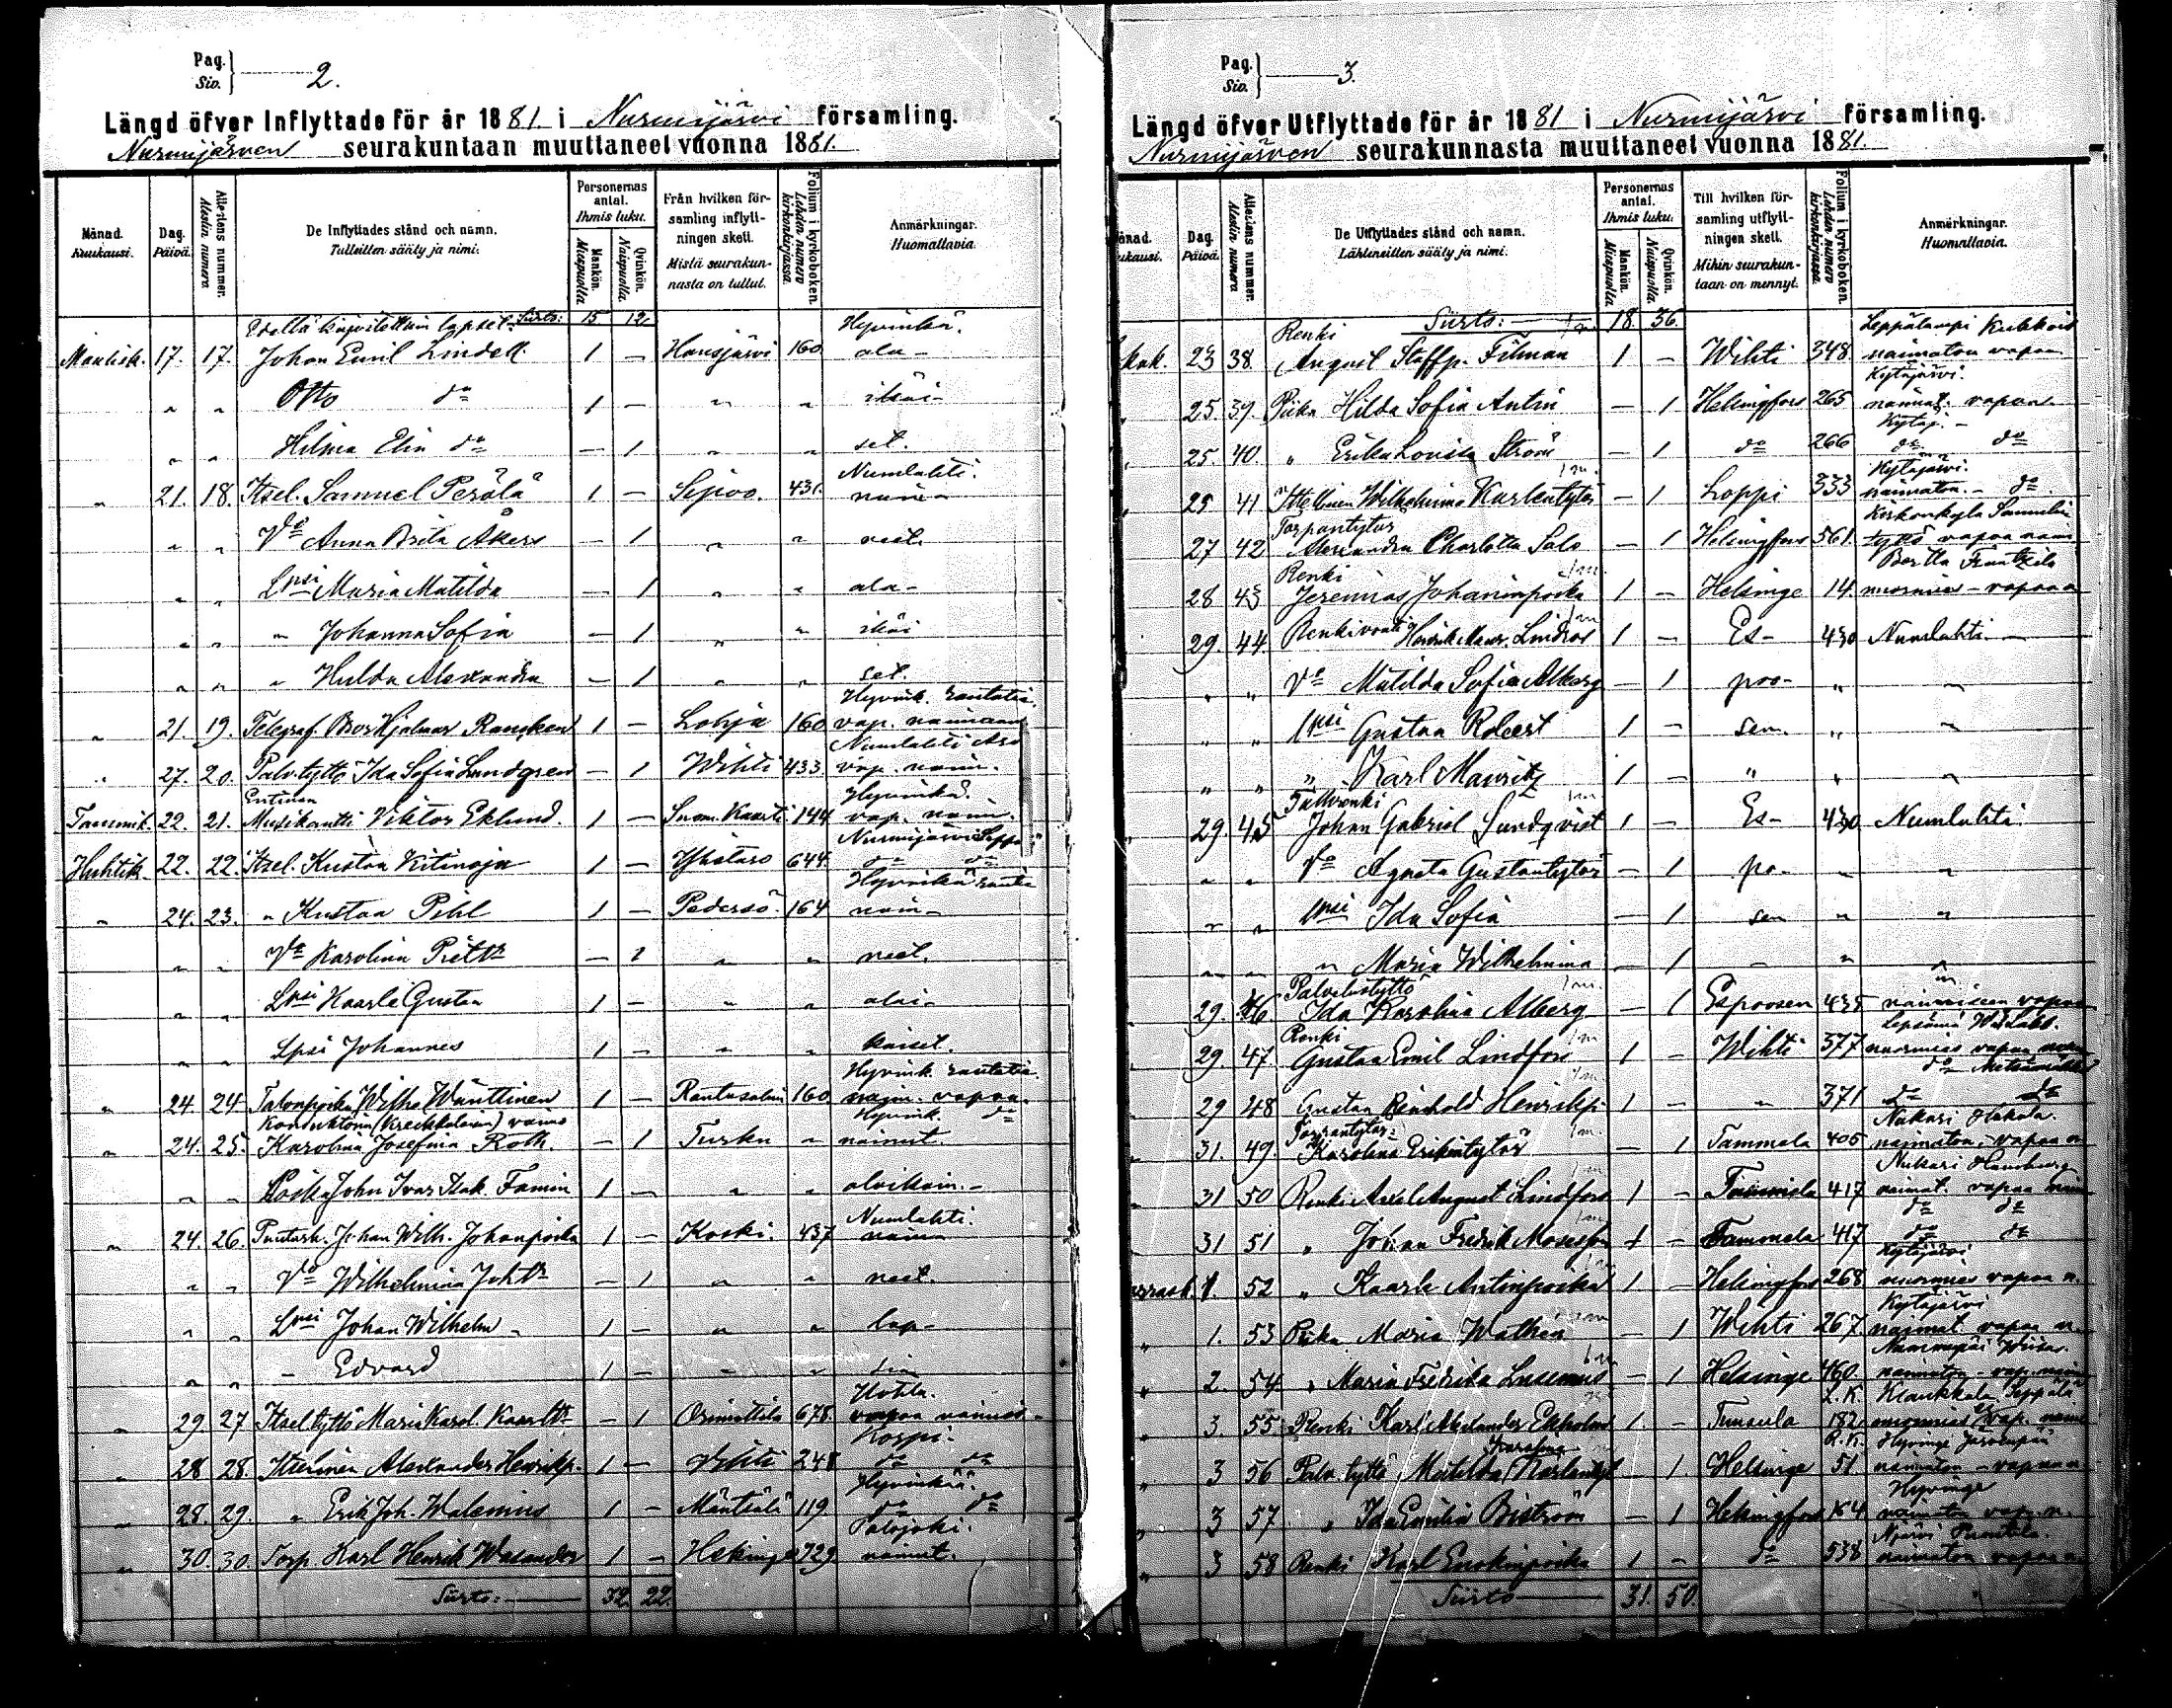 Pag.
Siv.
2.
Längd öfver Inflyttade för år 1881. i Nurmijärvi församling.
Nurmijärven seurakuntaan muuttaneet vuonna 1881.
Månad. Kuukausi.
Dag. Päivä.
Attestens nummer. Alestin numero
De Inflyttades stånd och namn. Tulleitten sääty ja nimi.
Personernas antal. Ihmis luku.
Mankön. Miespuolia
Qvinkön. Naispuolia.
Från hvilken församling inflyttningen skett. Mistä seurakunnasta on tullut.
Folium i kyrkoboken. Lehden numero kirkonkirjassa.
Anmärkningar. Huomattavia.
Siirto: 15 12
Hyvinkä.
Maalisk. 17. 17. Johan Emil Lindell 1 — Hausjärvi 160 ala-
" " Otto do 1 — " " ikäi-
" " Hilma Elin do — 1 " " set.
Numlahti.
" 21. 18. Itsel. Samuel Perälä 1 — Sipoo. 431. naim-
" " Vo Anna Brita Åkers — 1 " " eet.
" " Lpsi Maria Matilda — 1 " " ala-
" " " Johanna Sofia — 1 " " ikäi
" " " Hulda Alexandra — 1 " " set.
Hyvink. rautatie.
" 21. 19. Telegraf. Hjalmar 1 — Lohja 160 vap.
Numlahti
" 27. 20. Palv. tyttö Ida Sofia Lundgren — 1 Wihti 433 vap. naim.
Entinen Hyvinkä.
22. 21. Musikantti Viktor Eklund. 1 — Suom. Kaarti 144 vap. naim.
Nurmijärvi
Huhtik. 22. 22. Itsel. Kustaa Kitinoja 1 — Ylistaro 644. do do
Hyvinkä
" 24. 23. " Kustaa Pihl 1 — Pedersö 164 naim-
" " Vo Karolina — 1 " " neet.
" " Lpsi Kaarle Gustaa 1 — " " alai-
" " Lpsi Johannes 1 — " " kaiset.
Hyvink. rautatie.
" 24 24 Talonpoika Wilho Wänttinen 1 — Rantasalmi 160 naim. vapaa.
Hyvink. do
" 24. 25. Karolina Josefina Roth. — 1 Turku " naimat.
" " Poika John Ivar 1 — " "
Numlahti.
" 24. 26. Puutarh. Johan Wilh. Johanpoika 1 — Koski. 437 naim-
" " Vo Wilhelmina — 1 " " neet.
" " Lpsi Johan Wilhelm 1 — " " lap-
" " " Edvard 1 — " "
" 29. 27 Itsel. tyttö Maria Karol. — 1 Orimattila 678. vapaa
Korpi.
" 28 28. Itsellinen Alexander Henrikp. 1 — Vihti 248 do do
Hyvinkää.
" 28. 29. " Erik Joh. Walenius 1 — Mäntsälä 119 do do
Palojoki.
" 30. 30. Torp. Karl Henrik Wasander 1 — Helsinge 729 naimat.
Siirto: 32. 22.
Pag.
Siv.
3.
Längd öfver Utflyttade för år 1881 i Nurmijärvi församling.
Nurmijärven seurakunnasta muuttaneet vuonna 1881.
Dag. Päivä.
Attestens nummer. Alestin numero
De Utflyttades stånd och namn. Lähteneitten sääty ja nimi.
Personernas antal. Ihmis luku.
Mankön. Miespuolia
Qvinkön. Naispuolia.
Till hvilken församling utflyttningen skett. Mihin seurakuntaan on mennyt.
Folium i kyrkoboken. Lehden numero kirkonkirjassa.
Anmärkningar. Huomattavia.
Siirto: 18. 36.
Renki Leppälampi
23 38. August Staffp. Filman 1 — Wihti 348. naimaton vapaa
Kytäjärvi.
25. 39. Piika Hilda Sofia Antin — 1 Helsingfors 265 naimat. vapaa
Kytäj.
25. 40. " Erika Lovisa Ström — 1 do 266 do do
Kytäjärvi.
25 41 Wilhelmina Kaarlentytär — 1 Loppi 333 naimaton - do
Torpantytär Kirkonkylä
27 42 Alexandra Charlotta Salo — 1 Helsingfors 561. tyttö vapaa naim
Renki
28 43 Jeremias Johaninpoika 1 — Helsinge 14. nuormies - vapaa
29. 44. Renkivouti Lindros 1 — Es- 430 Numlahti
" " Vo Matilda Sofia Alberg — 1 poo- " "
" " lpsi Gustaa Robert 1 — sen. " "
" " " Karl Mauritz 1 — " " "
Tallirenki
29 45 Johan Gabriel Sundqvist 1 — Es- 430 Numlahti.
" " Vo Agneta Gustaatytär — 1 po- " "
" " lpsi Ida Sofia — 1 sen " "
" " " Maria Wilhelmina — 1 " " "
Palvelustyttö
29. 46. Ida Karolina Alberg — 1 Espoosen 438 vapaa
Renki Lepsämä
29. 47. Gustaa Emil Lindfors 1 — Wihti 377 nuormies vapaa
29 48 Gustaa Reinhold Henrikp. 1 — " 371 do do
Torpantytär Nukari
31. 49. Karolina Erikintytär — 1 Tammela 405 naimaton - vapaa
Nukari
31 50 Renki Axel August Lindfors 1 — Tammela 417 naimat. vapaa
do do
31 51 " Johan Fredrik 1 — Tammela 417 do do
Kytäjärvi
1. 52 " Kaarle Antinpoika 1 — Helsingfors 268 nuormies vapaa n.
Kytäjärvi
1. 53 Piika Maria Wathén — 1 Wihti 267 naimat. vapaa n.
2. 54 " Maria Fredrika Lusenius — 1 Helsinge 460. naimaton - vap.
L.K. Klaukkala Seppälä
3. 55 Renki Karl Alexander Ekholm 1 — Tuusula 182. nuormies vap. naim
R.K. Hyvinge
3 56 Palv. tyttö Matilda — 1 Helsinge 51. naimaton - vapaa
Hyvinge
3 57 " Ida Emilia Biström — 1 Helsingfors 164 naimaton vap. n.
Njärvi
3 58 Renki Karl Enokinpoika 1 — do 538 naimaton vapaa
Siirto 31. 50.